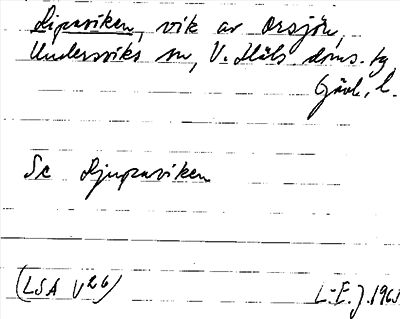 Djpaviken, vik av Orsjön,
Undersviks sn, V. Häls. doms. tg,
Gävl. l.
Se Djupaviken
(LSA V26)
L-E. J. 1963